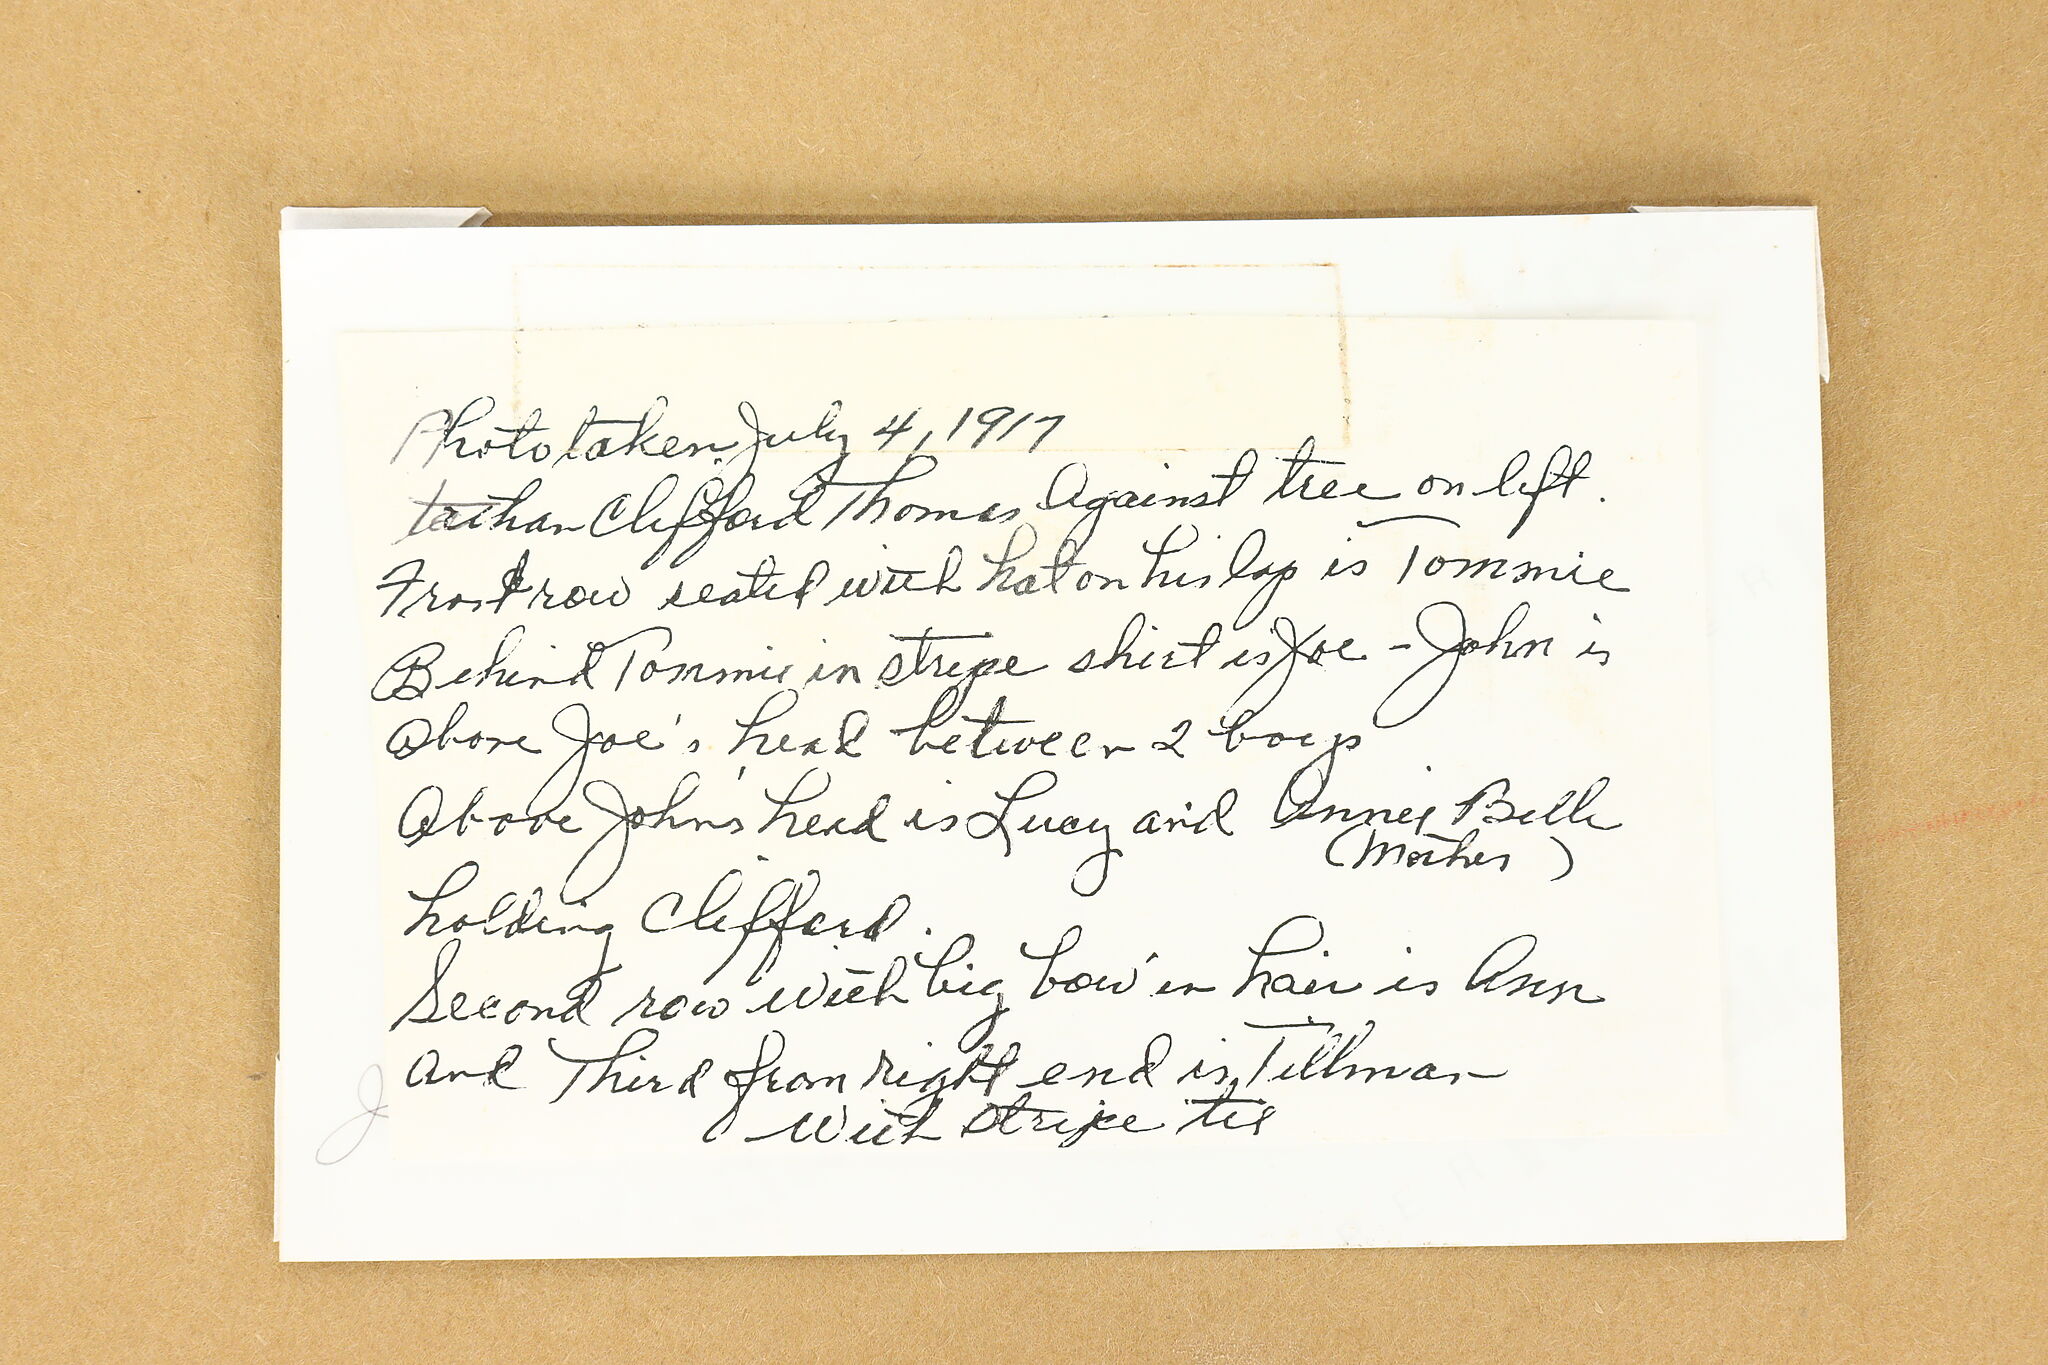 Photo taken July 4, 1917
Clifford Thomas Against tree on left.
Front row seated with hat on his lap is Tommie
Behind Tommie in stripe shirt is Joe - John is
Above Joe's head between 2 boys
Above John's head is Lucy and Annie Belle
(Mother)
holding Clifford.
Second row with big bow in hair is Ann
And Third from right end is Tillman
with stripe tie
J